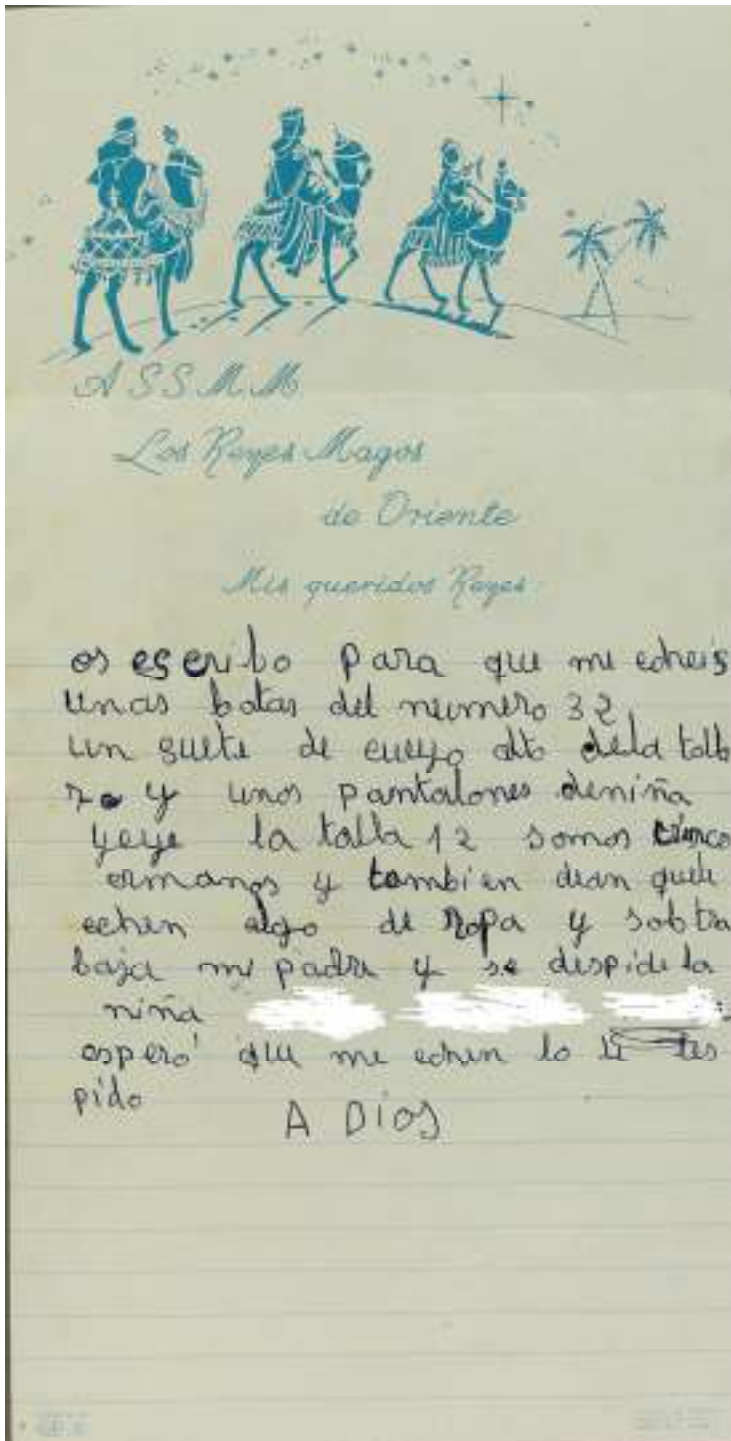 A SS.M.M.
Los Reyes Magos
de Oriente
Mis queridos Reyes:
os escribo para que me echeis
unas botas del número 32
un suete de cueyo alto dela talla
y unos pantalones deniña
yeye la talla 12 somos cinco
ermanos y tambien quele
echen algo de Ropa y solo tra
baja mi padre y se despide la
niña
espero que me echen lo
pido
A DioS